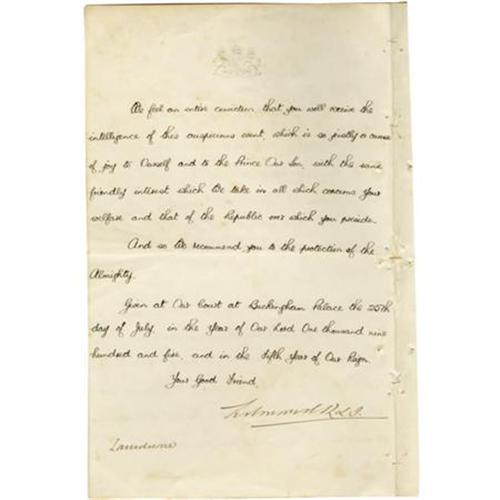 We feel an entire conviction that you will receive the
intelligence of this auspicious event, which is so justly a cause
of joy to Ourself and to the Prince Our Son, with the same
friendly interest which We take in all which concerns Your
welfare and that of the Republic over which you preside.
And so We recommend you to the protection of the
Almighty.
Given at Our Court at Buckingham Palace the 25th
day of July, in the Year of Our Lord One thousand nine
hundred and five, and in the Fifth Year of Our Reign.
Your Good Friend,
Edward R & I.
Lansdowne